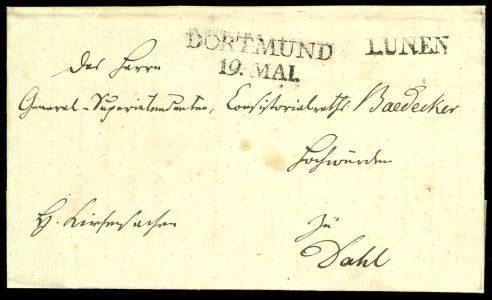 DORTMUND LUNEN
19. MAI.
Des Herrn
General-Superintendenten, Consistorialraths Baedecker
Hochwürden
H. Kirchensachen
zu
Dahl